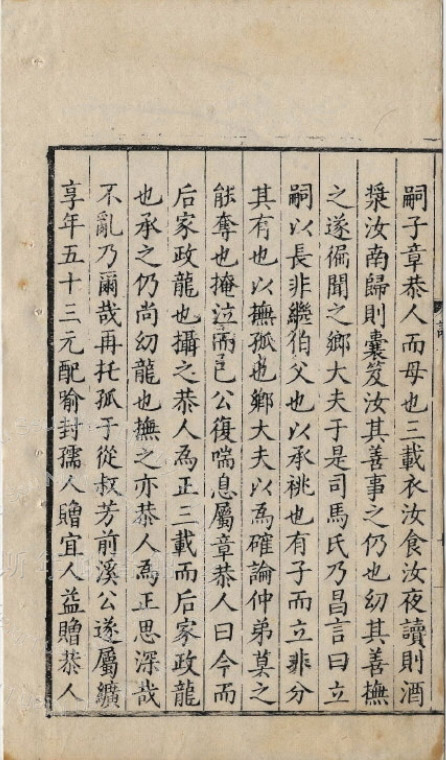 嗣子章恭人而母也三載衣汝食汝夜讀則酒
漿汝南歸則囊笈汝其善事之仍也幼其善撫
之遂徧聞之鄉大夫于是司馬氏乃昌言曰立
嗣以長非繼伯父也以承祧也有子而立非分
其有也以撫孤也鄉大夫以為確論仲弟莫之
能奪也掩泣而已公復喘息屬章恭人曰今而
后家政龍也攝之恭人為正三載而后家政龍
也承之仍尚幼龍也撫之亦恭人為正思深哉
不亂乃爾哉再托孤于從叔芳前溪公遂屬纊
享年五十三元配喻封孺人贈宜人益贈恭人